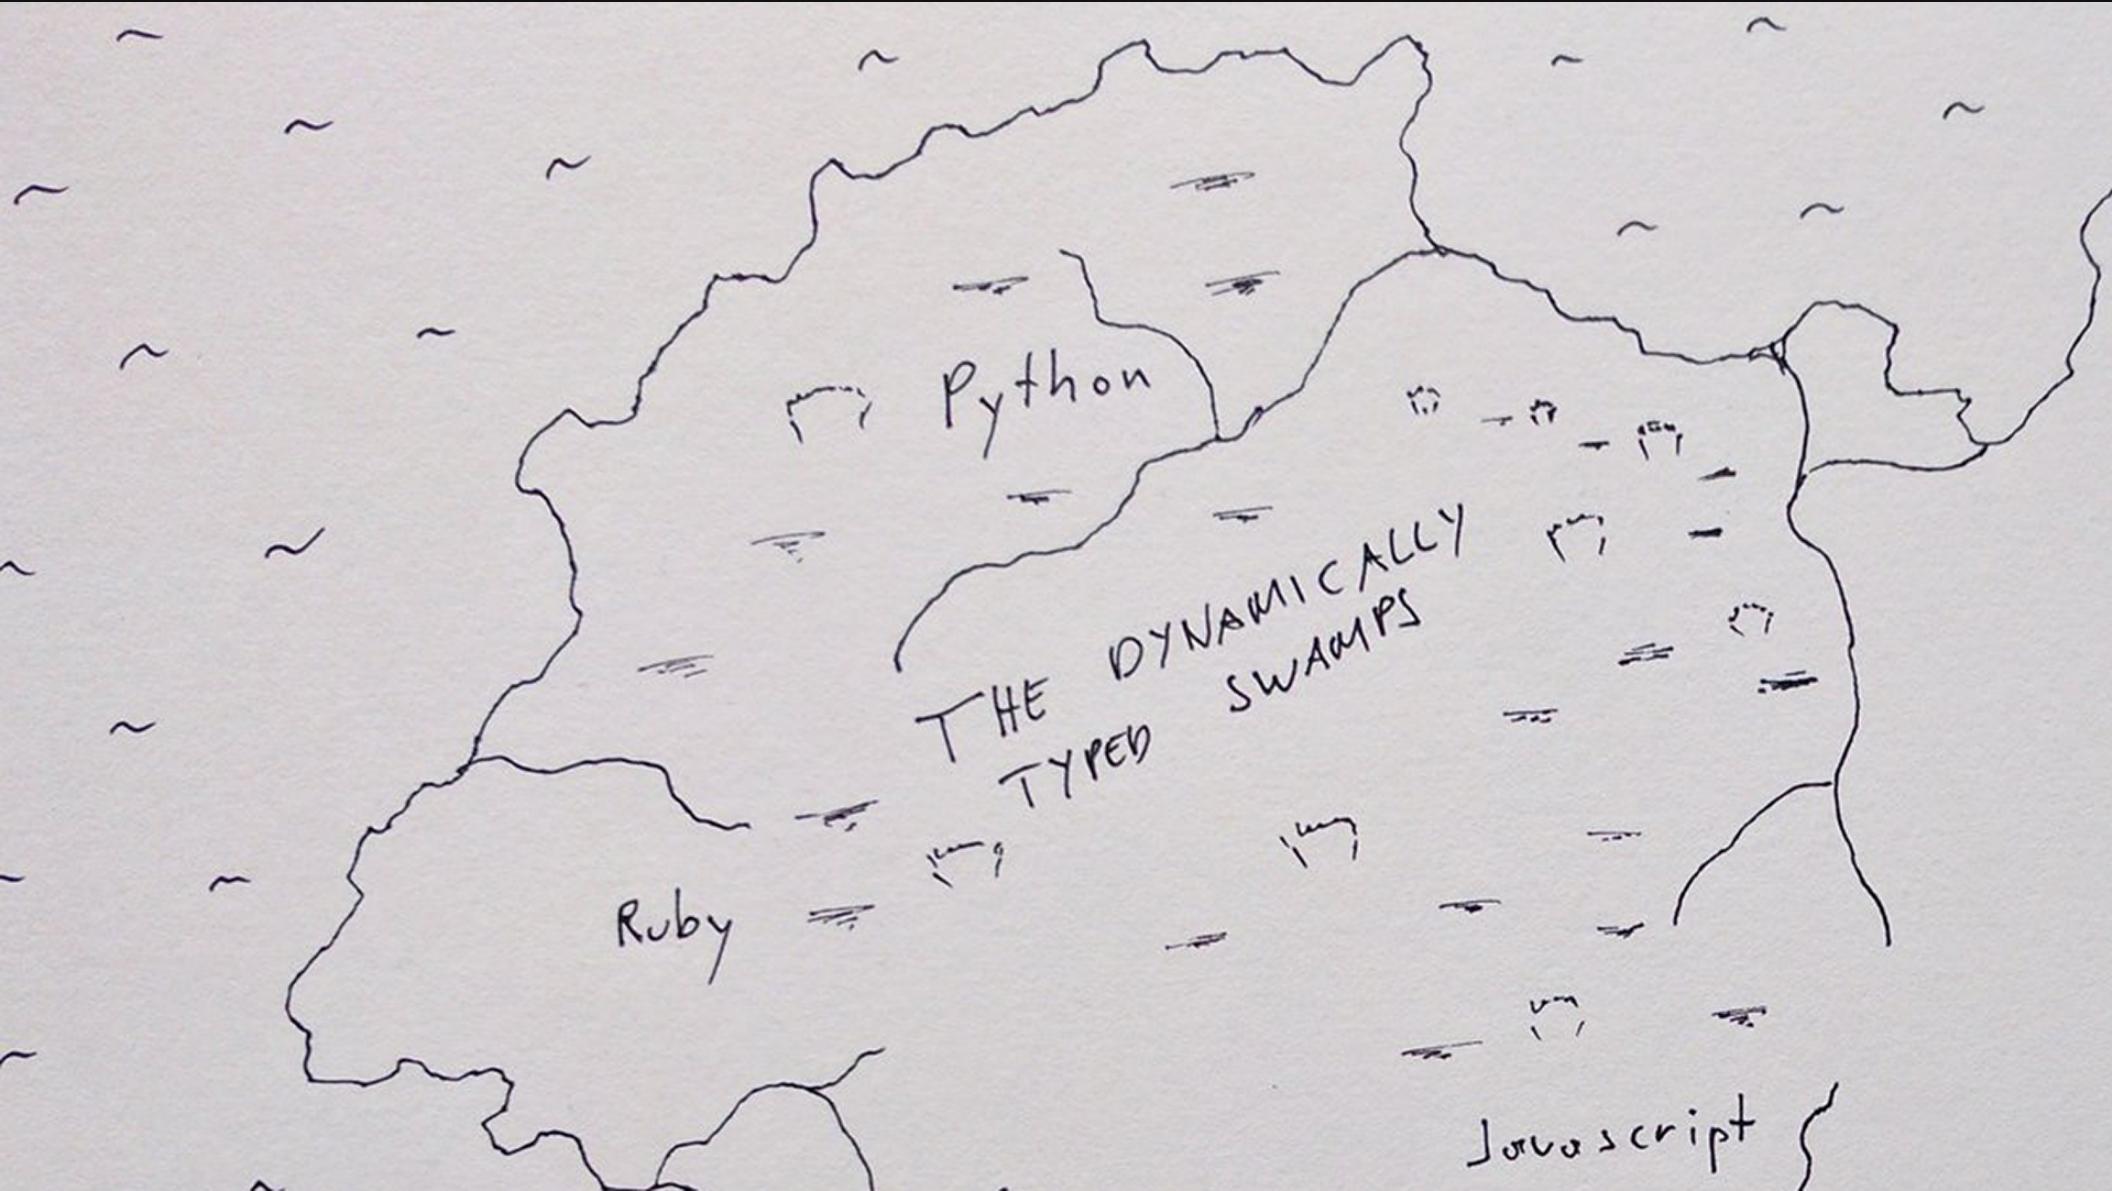 Python
THE DYNAMICALLY
TYPED SWAMPS
Ruby
Javascript